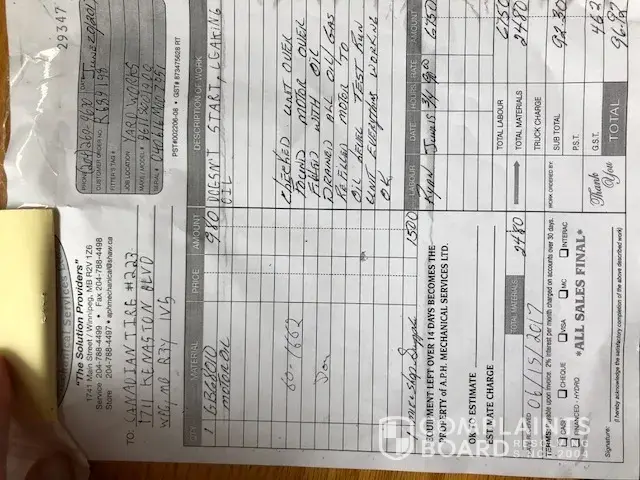 29347
"The Solution Providers"
1741 Main Street / Winnipeg, MB R2V 1Z6
Service 204-788-4499 • Fax 204-788-4498
Store 204-788-4497 • aphmechanical@shaw.ca
TO: CANADIAN TIRE #223
1711 KENASTON BLVD
WPG MB R3Y 1V5
PHONE DATE
CUSTOMER ORDER NO.
FITTER'S TAG #
JOB LOCATION YARD WORKS
MAKE / MODEL #
SERIAL #
PST#002206-08 • GST# 873475628 RT
QTY. MATERIAL PRICE AMOUNT DESCRIPTION OF WORK
1 980 DOESN'T START, LEAKING
MOTOR OIL OIL
60-1882
Don
CHECKED UNIT OVER
FOUND MOTOR OVER
FILLED WITH OIL
DRAINED ALL OIL/GAS
RE FILLED MOTOR TO
OIL LEVEL TEST RUN
UNIT EVERYTHING WORKING
OK
1500
LABOUR DATE HOURS RATE AMOUNT
Ryan June 15 3/4 90.00 6750
EQUIPMENT LEFT OVER 14 DAYS BECOMES THE
PROPERTY of A.P.H. MECHANICAL SERVICES LTD.
OK TO ESTIMATE
ESTIMATE CHARGE
TOTAL MATERIALS 2480
TOTAL LABOUR 6750
TOTAL MATERIALS 2480
TRUCK CHARGE
SUB TOTAL 92.30
P.S.T.
G.S.T. 4.62
TOTAL 96.92
06/15/2017
WORK ORDERED BY:
2% interest per month charged on accounts over 30 days.
CASH CHEQUE VISA MC INTERAC
FINANCED - HYDRO
*ALL SALES FINAL*
Thank You
Signature:
(I hereby acknowledge the satisfactory completion of the above described work)
COMPLAINTS
BOARD
RESOLVING
SINCE 2004